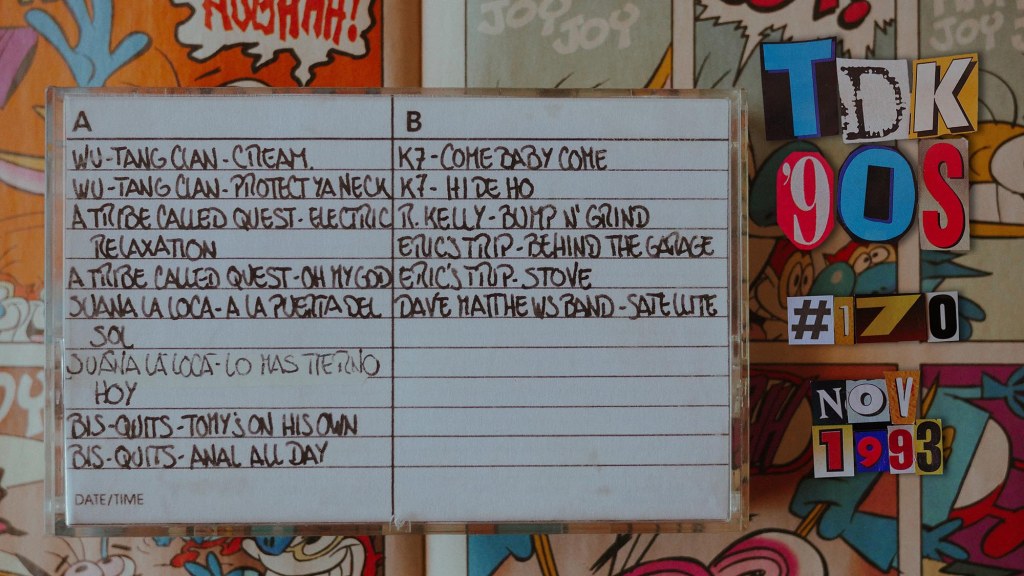 HHH!
JOY
JOY
A
WU-TANG CLAN - CREAM.
WU-TANG CLAN - PROTECT YA NECK
A TRIBE CALLED QUEST - ELECTRIC
RELAXATION
A TRIBE CALLED QUEST - OH MY GOD
JUANA LA LOCA - A LA PUERTA DEL
SOL
JUANA LA LOCA - LO MAS TIERNO
HOY
BIS-QUITS - TOMY'S ON HIS OWN
BIS-QUITS - ANAL ALL DAY
DATE/TIME
B
K7 - COME BABY COME
K7 - HI DE HO
R. KELLY - BUMP N' GRIND
ERIC'S TRIP - BEHIND THE GARAGE
ERIC'S TRIP - STOVE
DAVE MATTHEWS BAND - SATELLITE
TDK
'90S
#170
NOV
1993